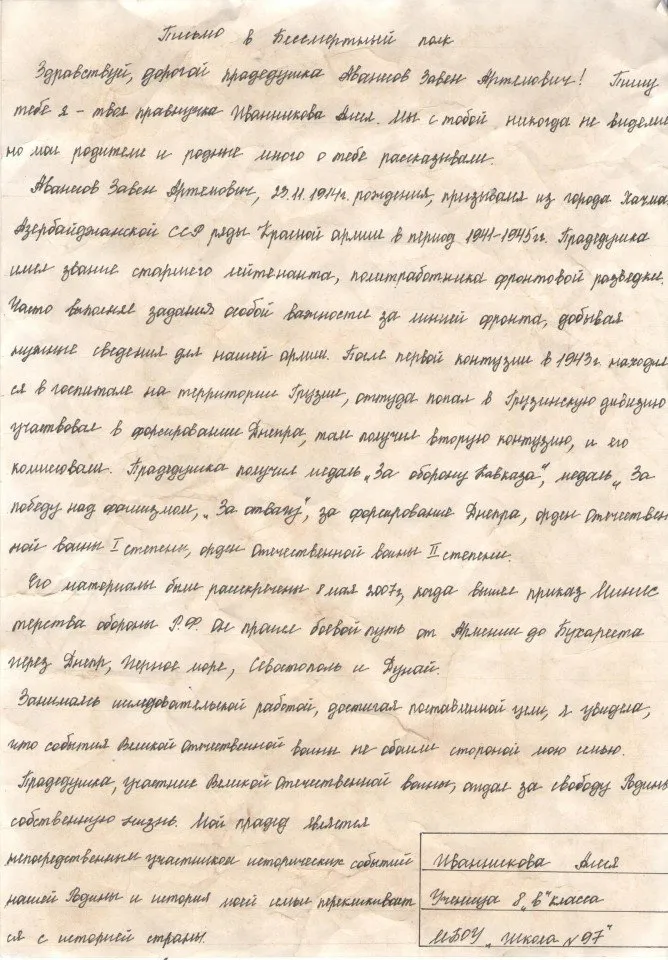 Письмо в Бессмертный полк
Здравствуй, дорогой прадедушка Авансов Завен Артемович! Пишу
тебе я - твоя правнучка Иванникова Алея. Мы с тобой никогда не видели
но мои родители и родные много о тебе рассказывали.
Авансов Завен Артемович, 23.11.1914г. рождения, призывался из города Хачма
Азербайджанской ССР ряды Красной армии в период 1941-1945гг. Прадедушка
имел звание старшего лейтенанта, политработника фронтовой разведки.
Часто выполнял задания особой важности за линией фронта, добывая
нужные сведения для нашей армии. После первой контузии в 1943г. находил
ся в госпитале на территории Грузии, оттуда попал в Грузинскую дивизию
участвовал в форсировании Днепра, там получил вторую контузию, и его
комисовали. Прадедушка получил медаль „За оборону Кавказа", медаль „За
победу над фашизмом, „За отвагу", за форсирование Днепра, орден Отечествен
ной воины I степени, орден Отечественной воины II степени.
Его материалы были рассекречены 8 мая 2007г, когда вышел приказ Минис
терства обороны Р.Ф. Он прошел боевой путь от Армении до Бухареста
через Днепр, Черное море, Севастополь и Дунай.
Занимаясь исследовательской работой, достигая поставленной цели, я увидела,
что события Великой Отечественной воины не обошли стороной мою семью.
Прадедушка, участник Великой Отечественной воины, отдал за свободу Родины
собственную жизнь. Мой прадед является
непосредственным участником исторических событий
нашей Родины и история моей семьи перекликает
ся с историей страны.
Иванникова Алея
Ученица 8 „в" класса
МБОУ „Школа №97"